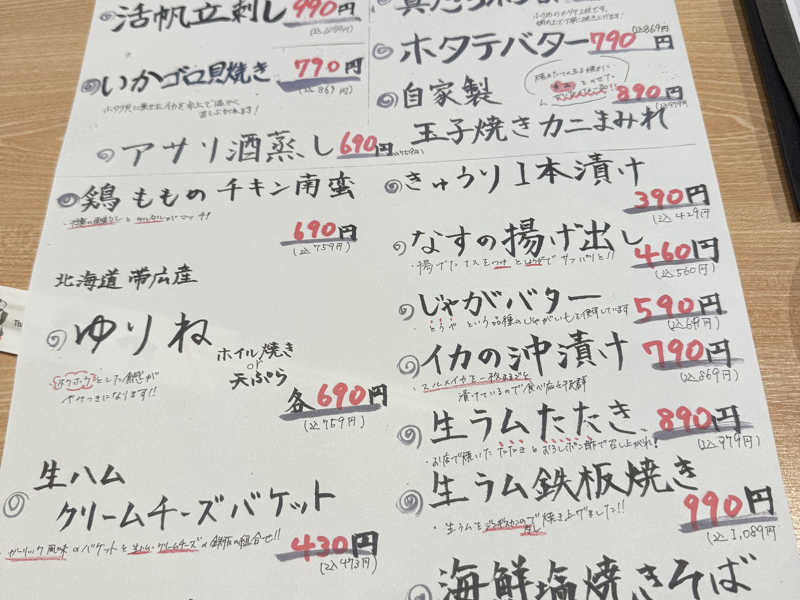 活帆立刺し 990円
いかゴロ貝焼き 790円
(込869円)
アサリ酒蒸し 690円
(込759円)
鶏ももの チキン南蛮
690円
(込759円)
北海道 帯広産
ゆりね
ホイル焼き
or
天ぷら
ホクホクとした食感が
やみつきになります!!
各690円
(込759円)
生ハム
クリームチーズバケット
ガーリック風味のバケットと生ハム・クリームチーズの鉄板の組合せ!!
430円
(込473円)
ホタテバター 790円
(込869円)
自家製 890円
(込979円)
玉子焼きカニまみれ
きゅうり1本漬け
390円
(込429円)
なすの揚げ出し 460円
(込560円)
じゃがバター 590円
・とうや という品種のじゃがいもを使用しています
イカの沖漬け 790円
(込869円)
・スルメイカを一杯まるごと
漬けているので食べ応え抜群
生ラムたたき 890円
(込979円)
・お店で焼いた たたきをおろしポン酢で召し上がれ!
生ラム鉄板焼き
990円
(込1,089円)
海鮮塩焼きそば